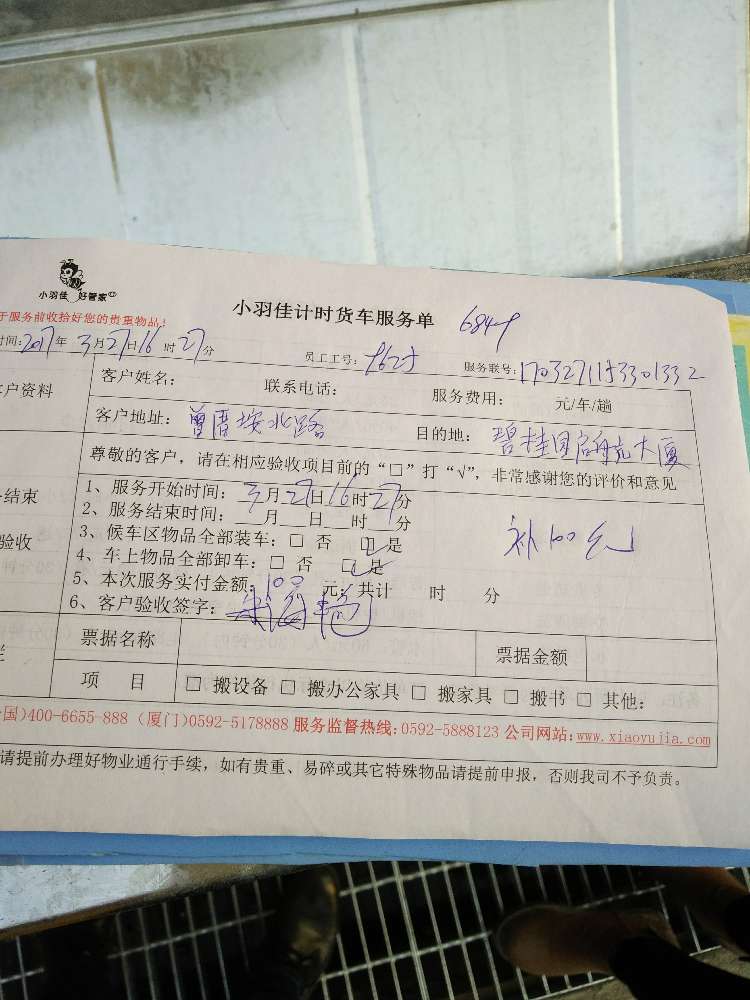 小羽佳 好管家
小羽佳计时货车服务单
于服务前收拾好您的贵重物品！
时间:2017年3月27日16时27分 员工工号: 服务联号:
户资料 客户姓名： 联系电话： 服务费用： 元/车/趟
客户地址：曾厝垵北路 目的地：碧桂园启航大厦
尊敬的客户，请在相应验收项目前的“□”打“√”，非常感谢您的评价和意见
结束
验收
1、服务开始时间：3月27日16时27分
2、服务结束时间：__月__日__时__分
3、候车区物品全部装车：□ 否 □ 是
补100元
4、车上物品全部卸车：□ 否 □ 是
5、本次服务实付金额：100元；共计 时 分
6、客户验收签字：
票据名称 票据金额
项 目 □ 搬设备 □ 搬办公家具 □ 搬家具 □ 搬书 □ 其他：
国)400-6655-888 (厦门)0592-5178888 服务监督热线:0592-5888123 公司网站:www.xiaoyujia.com
请提前办理好物业通行手续，如有贵重、易碎或其它特殊物品请提前申报，否则我司不予负责。